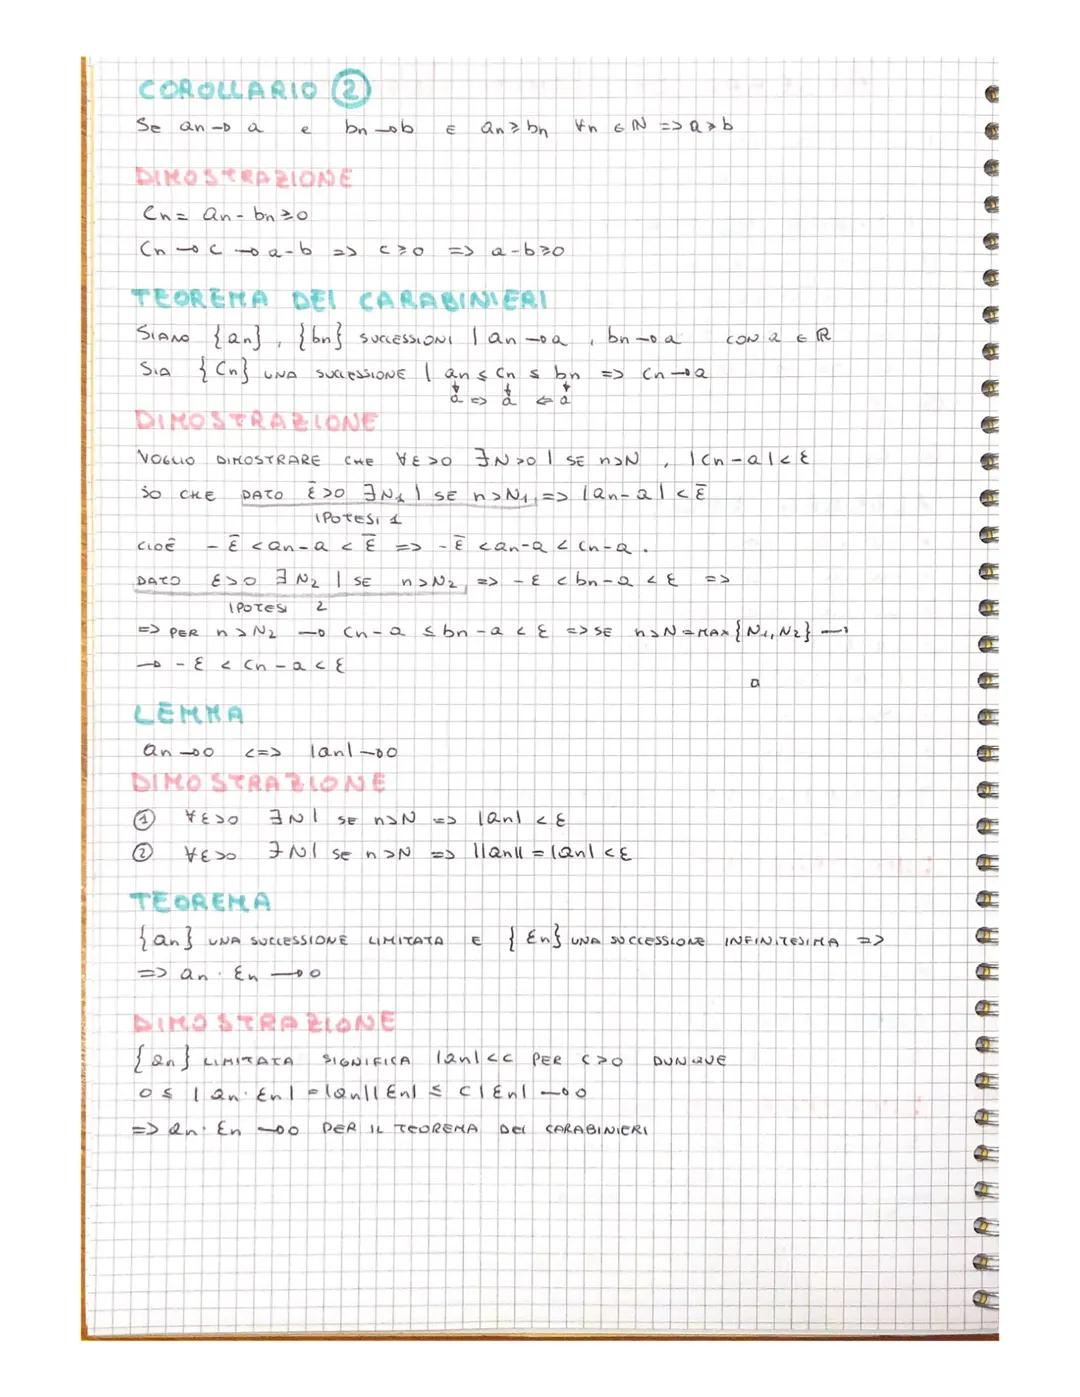 COROLLARIO ②
SE an → a e bn → b E an ≥ bn ∀n ∈ ℕ => a ≥ b
DIMOSTRAZIONE
Cn = an - bn ≥ 0
Cn → c → a-b => c ≥ 0 => a-b ≥ 0
TEOREMA DEI CARABINIERI
SIANO {an}, {bn} SUCCESSIONI | an → a, bn → a CON a ∈ ℝ
SIA {Cn} UNA SUCCESSIONE | an ≤ Cn ≤ bn => Cn → a
↓ ↓ ↓
a => a <= a
DIMOSTRAZIONE
VOGLIO DIMOSTRARE CHE ∀ε>0 ∃N>0 | SE n>N, |Cn-a|<ε
SO CHE DATO ε̄>0 ∃N1 | SE n>N1, => |an-a|<ε̄
IPOTESI 1
CIOÈ -ε̄ < an-a < ε̄ => -ε̄ < an-a < Cn-a.
DATO ε>0 ∃N2 | SE n>N2, => -ε < bn-a < ε =>
IPOTESI 2
=> PER n>N2 → Cn-a ≤ bn-a < ε => SE n>N = MAX{N1, N2} →
→ -ε < Cn-a < ε
□
LEMMA
an → 0 <=> |an| → 0
DIMOSTRAZIONE
① ∀ε>0 ∃N | SE n>N => |an| < ε
② ∀ε>0 ∃N | SE n>N => ||an|| = |an| < ε
TEOREMA
{an} UNA SUCCESSIONE LIMITATA E {εn} UNA SUCCESSIONE INFINITESIMA =>
=> an · εn → 0
DIMOSTRAZIONE
{an} LIMITATA SIGNIFICA |an|<c PER c>0 DUNQUE
0 ≤ |an · εn| = |an||εn| ≤ c|εn| → 0
=> an · εn → 0 PER IL TEOREMA DEI CARABINIERI